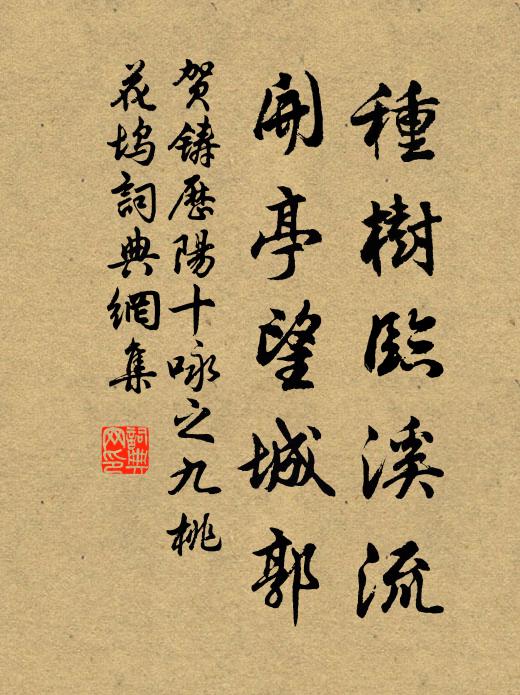 種樹臨溪流
開亭望城郭
賀鑄歷陽十咏之九桃
花塢詞典網集
詞典網印